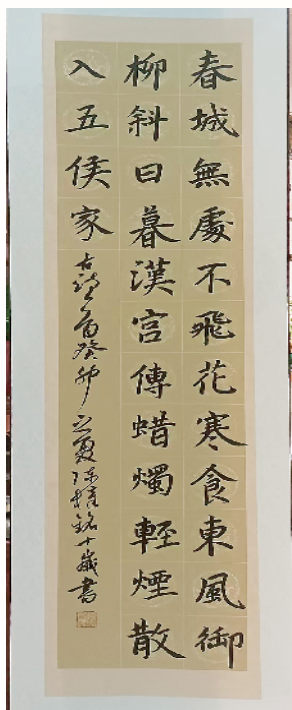 春城無處不飛花寒食東風御
柳斜日暮漢宫傳蜡燭輕煙散
入五侯家
古詩一首癸卯之夏陈楷銘十歲書